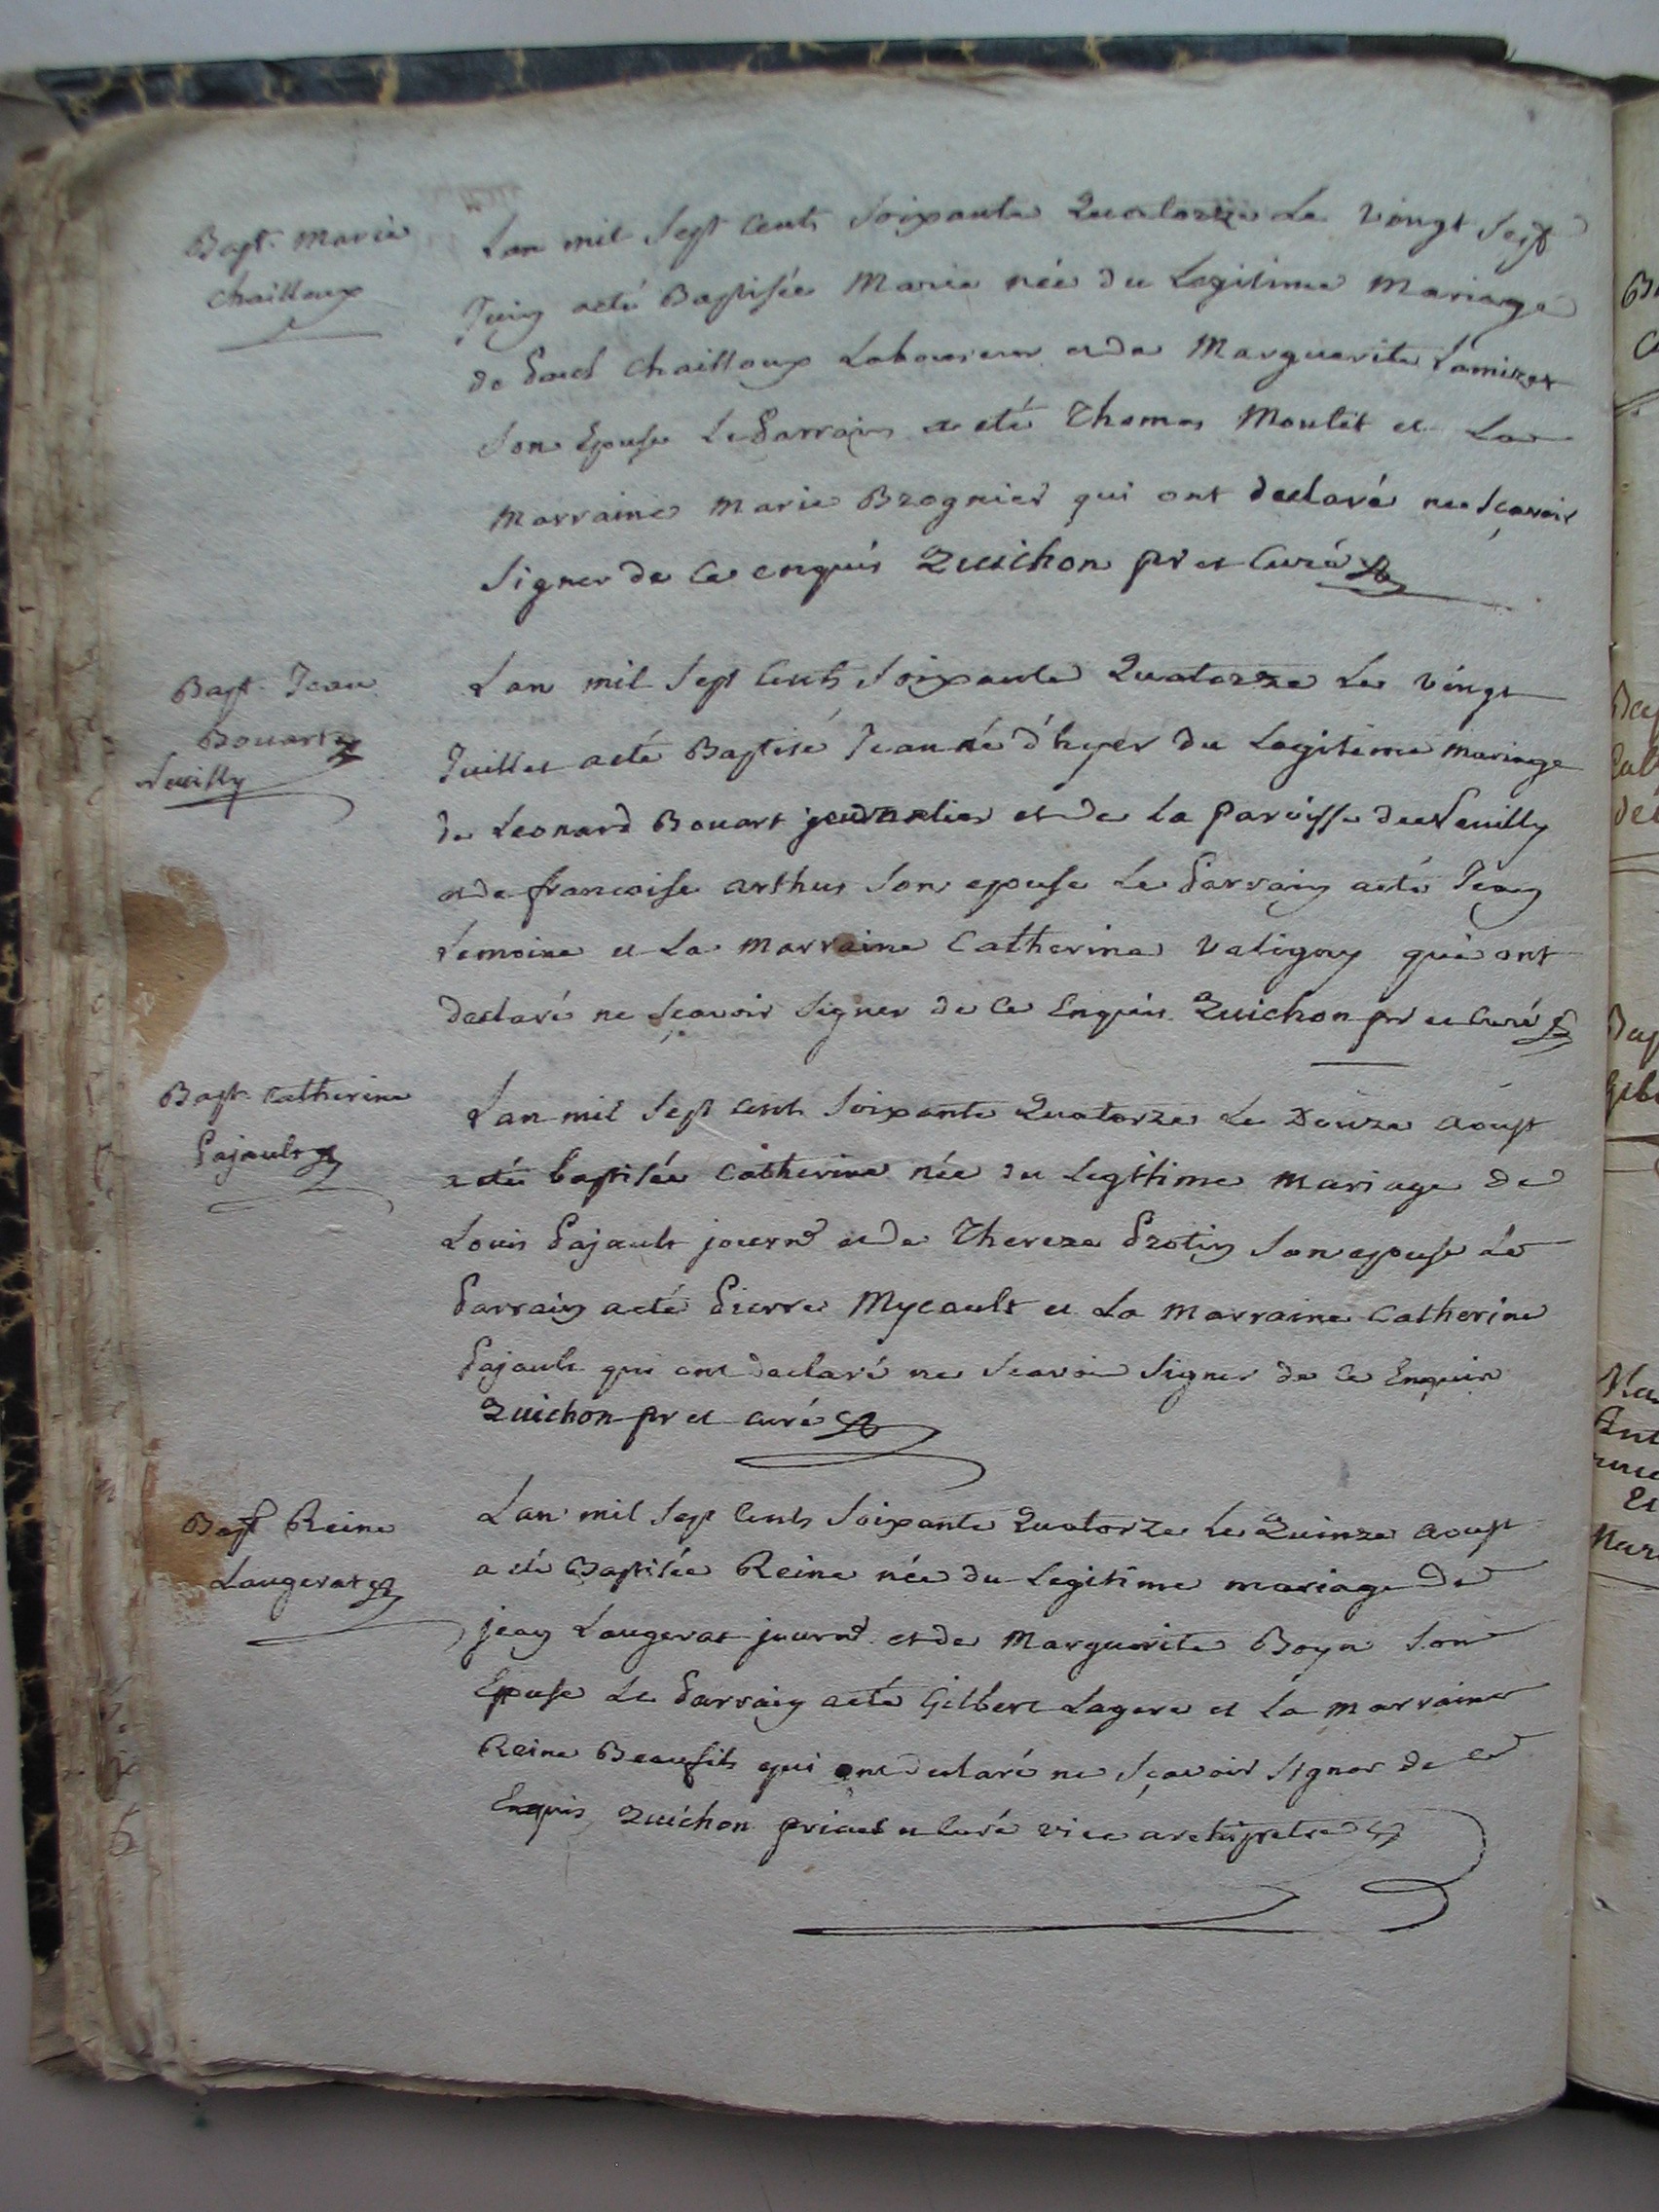 Bapt. Marie
Chailloux
Lan mil Sept Cents Soixante Quatorze Le vingt Sept
Juin aeté Baptisée Marie née du Legitime Mariage
de Paul Chailloux Laboureur et de Marguerite
Son Epouse Le Parrain a eté Thomas Moulet et La
Marraine Marie qui ont declaré ne Sçavoir
Signer de Ce enquis Quichon pr et Curé
Bapt. Jean
Bouart
Neuilly
Lan mil Sept Cents Soixante Quatorze Le vingt
Juillet aeté Baptisé Jean né d'hyer du Legitime mariage
de Leonard Bouart journalier et de La paroisse de Neuilly
et de francoise arthus Son epouse Le Parrain aeté Jean
Lemoine et La marraine Catherine Valigny qui ont
declaré ne Scavoir Signer de Ce Enquis Quichon pr et Curé
Bapt. Catherine
Pajault
Lan mil Sept Cents Soixante Quatorze Le Douze aoust
a eté baptisée Catherine née du Legitime mariage de
Louis Pajault journ et de Thereze Protin Son epouse Le
Parrain aeté Pierre Mycault et La Marraine Catherine
Pajault qui ont declaré ne Scavoir Signer de Ce Enquis
Quichon pr et curé
Bapt Reine
Laugerat
Lan mil Sept Cents Soixante Quatorze Le Quinze aoust
a eté Baptisée Reine née du Legitime mariage de
jean Laugerat journ et de Marguerite Boya Son
Epouse Le Parrain aeté Gilbert Lagere et La marraine
Reine Beaufils qui ont declaré ne Sçavoir Signer de ce
Enquis Quichon et Curé vice archipretre